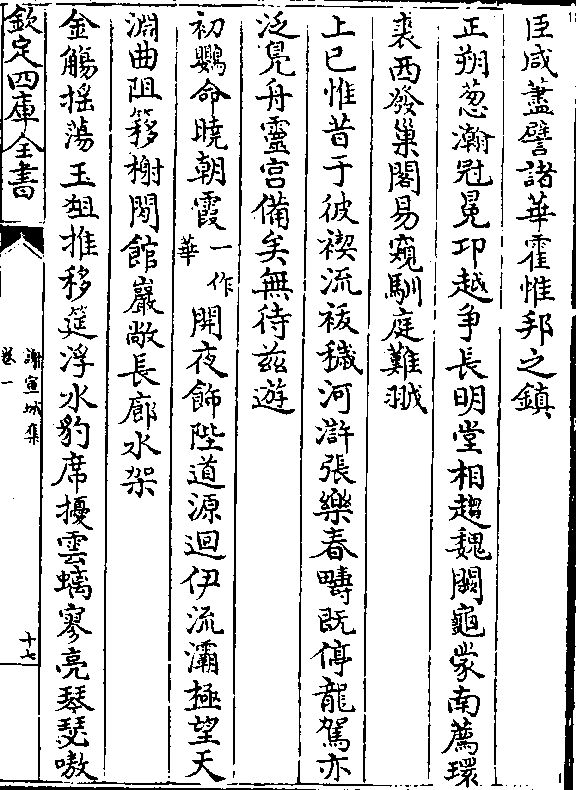 臣咸藎譬諸華霍惟邦之鎮
正朔葱瀚冠冕卭越争長明堂相趨魏闕龜蒙南薦環
裘西發巢閣易窺馴庭難
上巳惟昔于彼禊流祓穢河滸張樂春疇既停龍駕亦
泛鳧舟靈宫備矣無待兹遊
初鸎命曉朝霞一作華開夜飾陛道源迴伊流灞極望天
淵曲阻簃榭閒館巖敞長廊水架
金觴摇蕩玉俎推移筵浮水豹席擾雲螭寥亮琴瑟嗷
欽定四庫全書
謝宣城集
卷一
十七